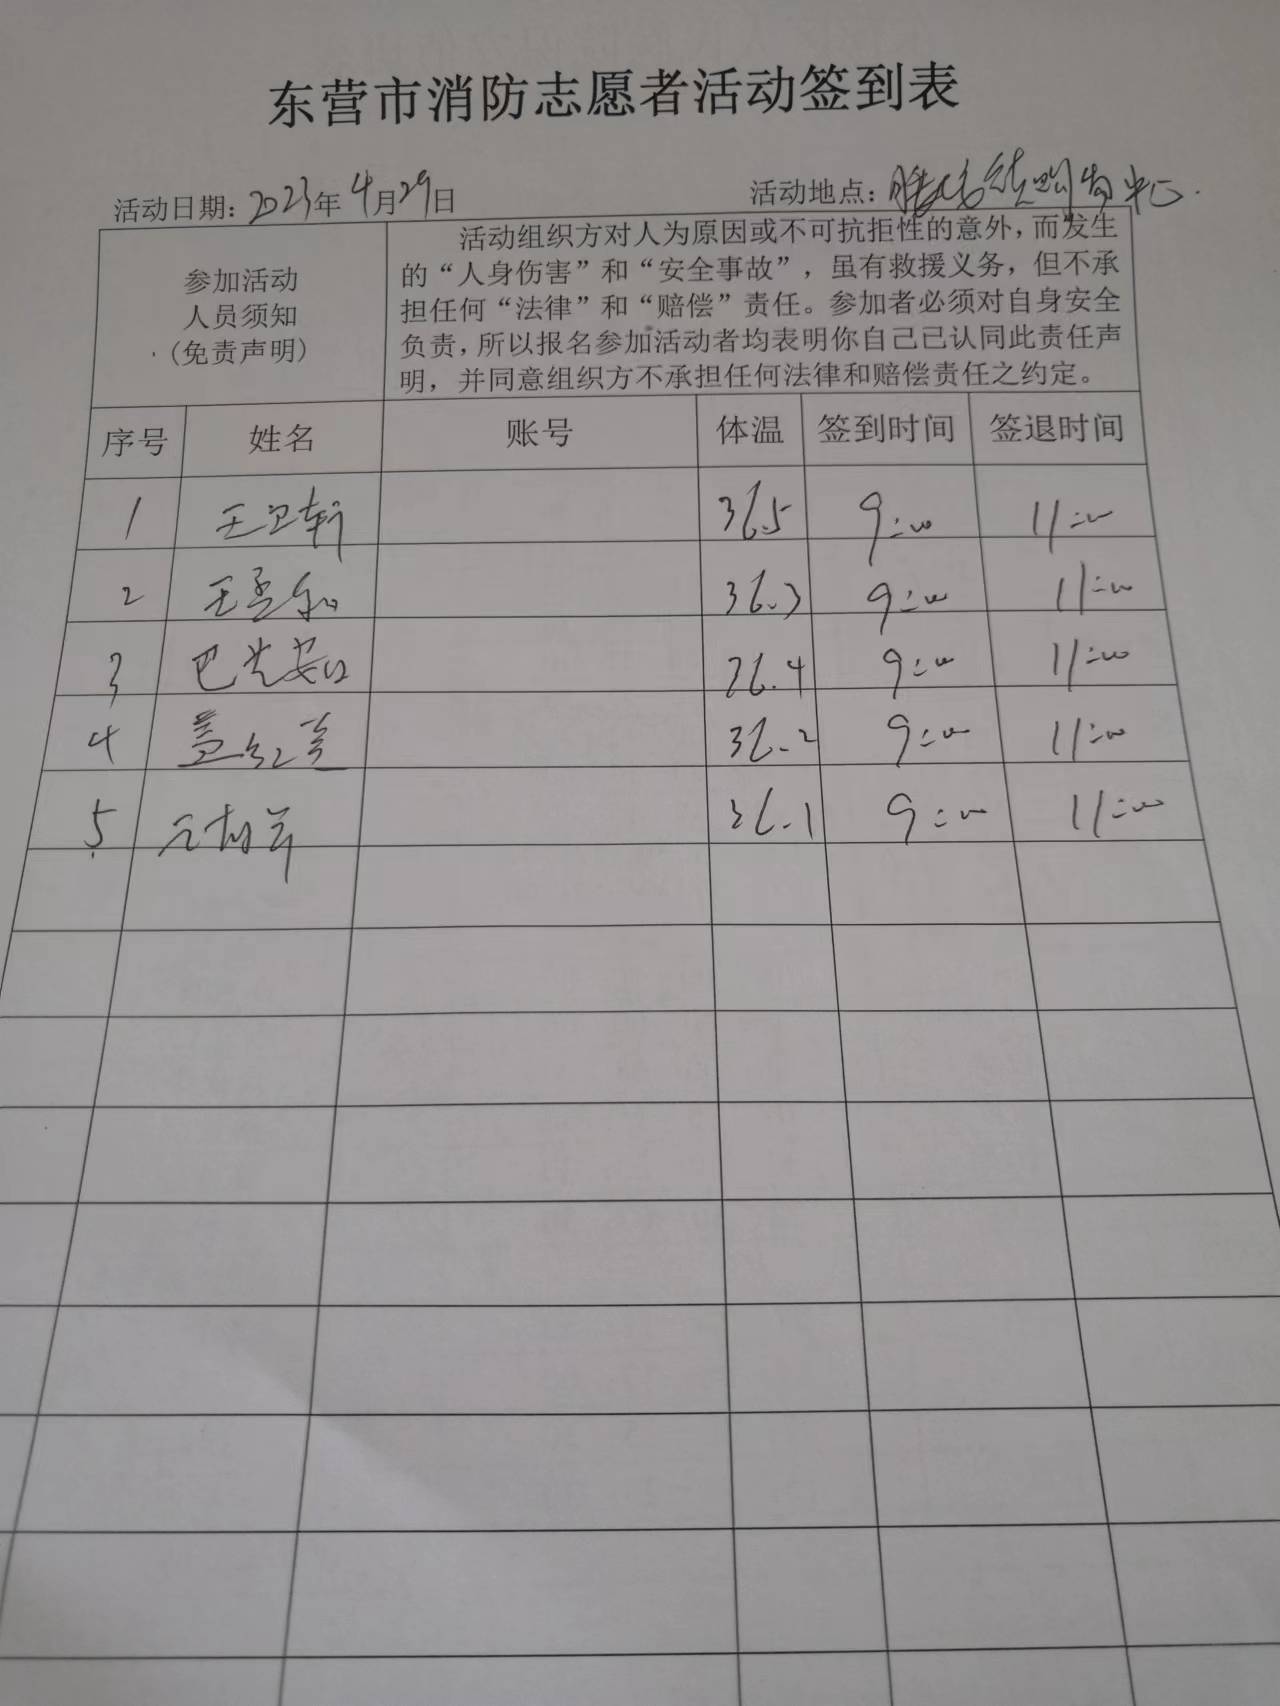 东营市消防志愿者活动签到表
活动日期：2023年4月29日 活动地点： 中心.
参加活动
人员须知
(免责声明)
活动组织方对人为原因或不可抗拒性的意外，而发生
的“人身伤害”和“安全事故”，虽有救援义务，但不承
担任何“法律”和“赔偿”责任。参加者必须对自身安全
负责，所以报名参加活动者均表明你自己已认同此责任声
明，并同意组织方不承担任何法律和赔偿责任之约定。
序号 姓名 账号 体温 签到时间 签退时间
1 王卫轩 36.5 9:00 11:00
2 王孟 36.3 9:00 11:00
3 巴 36.4 9:00 11:00
4 盖红 36.2 9:00 11:00
5 36.1 9:00 11:00